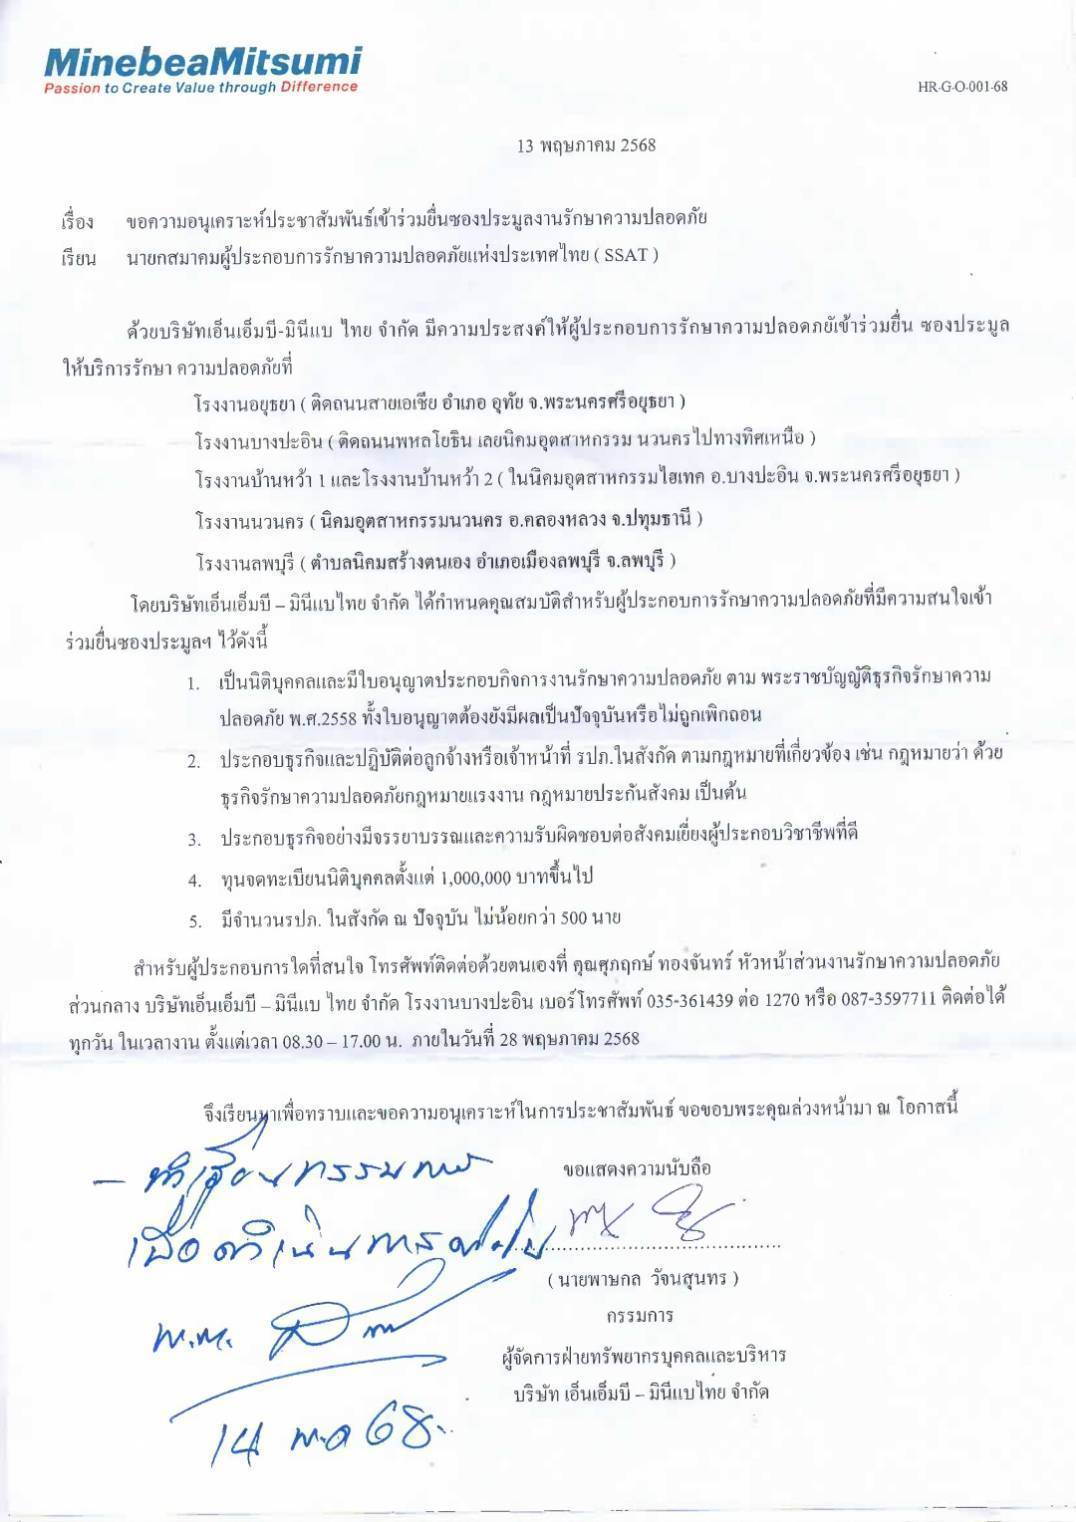 MinebeaMitsumi
Passion to Create Value through Difference
HR-G-O-001-68
13 พฤษภาคม 2568
เรื่อง ขอความอนุเคราะห์ประชาสัมพันธ์เข้าร่วมยื่นซองประมูลงานรักษาความปลอดภัย
เรียน นายกสมาคมผู้ประกอบการรักษาความปลอดภัยแห่งประเทศไทย ( SSAT )
ด้วยบริษัทเอ็นเอ็มบี-มินีแบ ไทย จำกัด มีความประสงค์ให้ผู้ประกอบการรักษาความปลอดภัยเข้าร่วมยื่น ซองประมูล
ให้บริการรักษา ความปลอดภัยที่
โรงงานอยุธยา ( ติดถนนสายเอเชีย อำเภอ อุทัย จ.พระนครศรีอยุธยา )
โรงงานบางปะอิน ( ติดถนนพหลโยธิน เลยนิคมอุตสาหกรรม นวนครไปทางทิศเหนือ )
โรงงานบ้านหว้า 1 และโรงงานบ้านหว้า 2 ( ในนิคมอุตสาหกรรมไฮเทค อ.บางปะอิน จ.พระนครศรีอยุธยา )
โรงงานนวนคร ( นิคมอุตสาหกรรมนวนคร อ.คลองหลวง จ.ปทุมธานี )
โรงงานลพบุรี ( ตำบลนิคมสร้างตนเอง อำเภอเมืองลพบุรี จ.ลพบุรี )
โดยบริษัทเอ็นเอ็มบี – มินีแบไทย จำกัด ได้กำหนดคุณสมบัติสำหรับผู้ประกอบการรักษาความปลอดภัยที่มีความสนใจเข้า
ร่วมยื่นซองประมูลฯ ไว้ดังนี้
1. เป็นนิติบุคคลและมีใบอนุญาตประกอบกิจการงานรักษาความปลอดภัย ตาม พระราชบัญญัติธุรกิจรักษาความ
ปลอดภัย พ.ศ.2558 ทั้งใบอนุญาตต้องยังมีผลเป็นปัจจุบันหรือไม่ถูกเพิกถอน
2. ประกอบธุรกิจและปฏิบัติต่อลูกจ้างหรือเจ้าหน้าที่ รปภ.ในสังกัด ตามกฎหมายที่เกี่ยวข้อง เช่น กฎหมายว่า ด้วย
ธุรกิจรักษาความปลอดภัยกฎหมายแรงงาน กฎหมายประกันสังคม เป็นต้น
3. ประกอบธุรกิจอย่างมีจรรยาบรรณและความรับผิดชอบต่อสังคมเยี่ยงผู้ประกอบวิชาชีพที่ดี
4. ทุนจดทะเบียนนิติบุคคลตั้งแต่ 1,000,000 บาทขึ้นไป
5. มีจำนวนรปภ. ในสังกัด ณ ปัจจุบัน ไม่น้อยกว่า 500 นาย
สำหรับผู้ประกอบการใดที่สนใจ โทรศัพท์ติดต่อด้วยตนเองที่ คุณศุภฤกษ์ ทองจันทร์ หัวหน้าส่วนงานรักษาความปลอดภัย
ส่วนกลาง บริษัทเอ็นเอ็มบี – มินีแบ ไทย จำกัด โรงงานบางปะอิน เบอร์โทรศัพท์ 035-361439 ต่อ 1270 หรือ 087-3597711 ติดต่อได้
ทุกวัน ในเวลางาน ตั้งแต่เวลา 08.30 – 17.00 น. ภายในวันที่ 28 พฤษภาคม 2568
จึงเรียนมาเพื่อทราบและขอความอนุเคราะห์ในการประชาสัมพันธ์ ขอขอบพระคุณล่วงหน้ามา ณ โอกาสนี้
ขอแสดงความนับถือ
( นายพาษกล วัจนสุนทร )
กรรมการ
ผู้จัดการฝ่ายทรัพยากรบุคคลและบริหาร
บริษัท เอ็นเอ็มบี – มินีแบไทย จำกัด
กรรมการ
เพื่อดำเนินการต่อไป
14 พ.ค 68